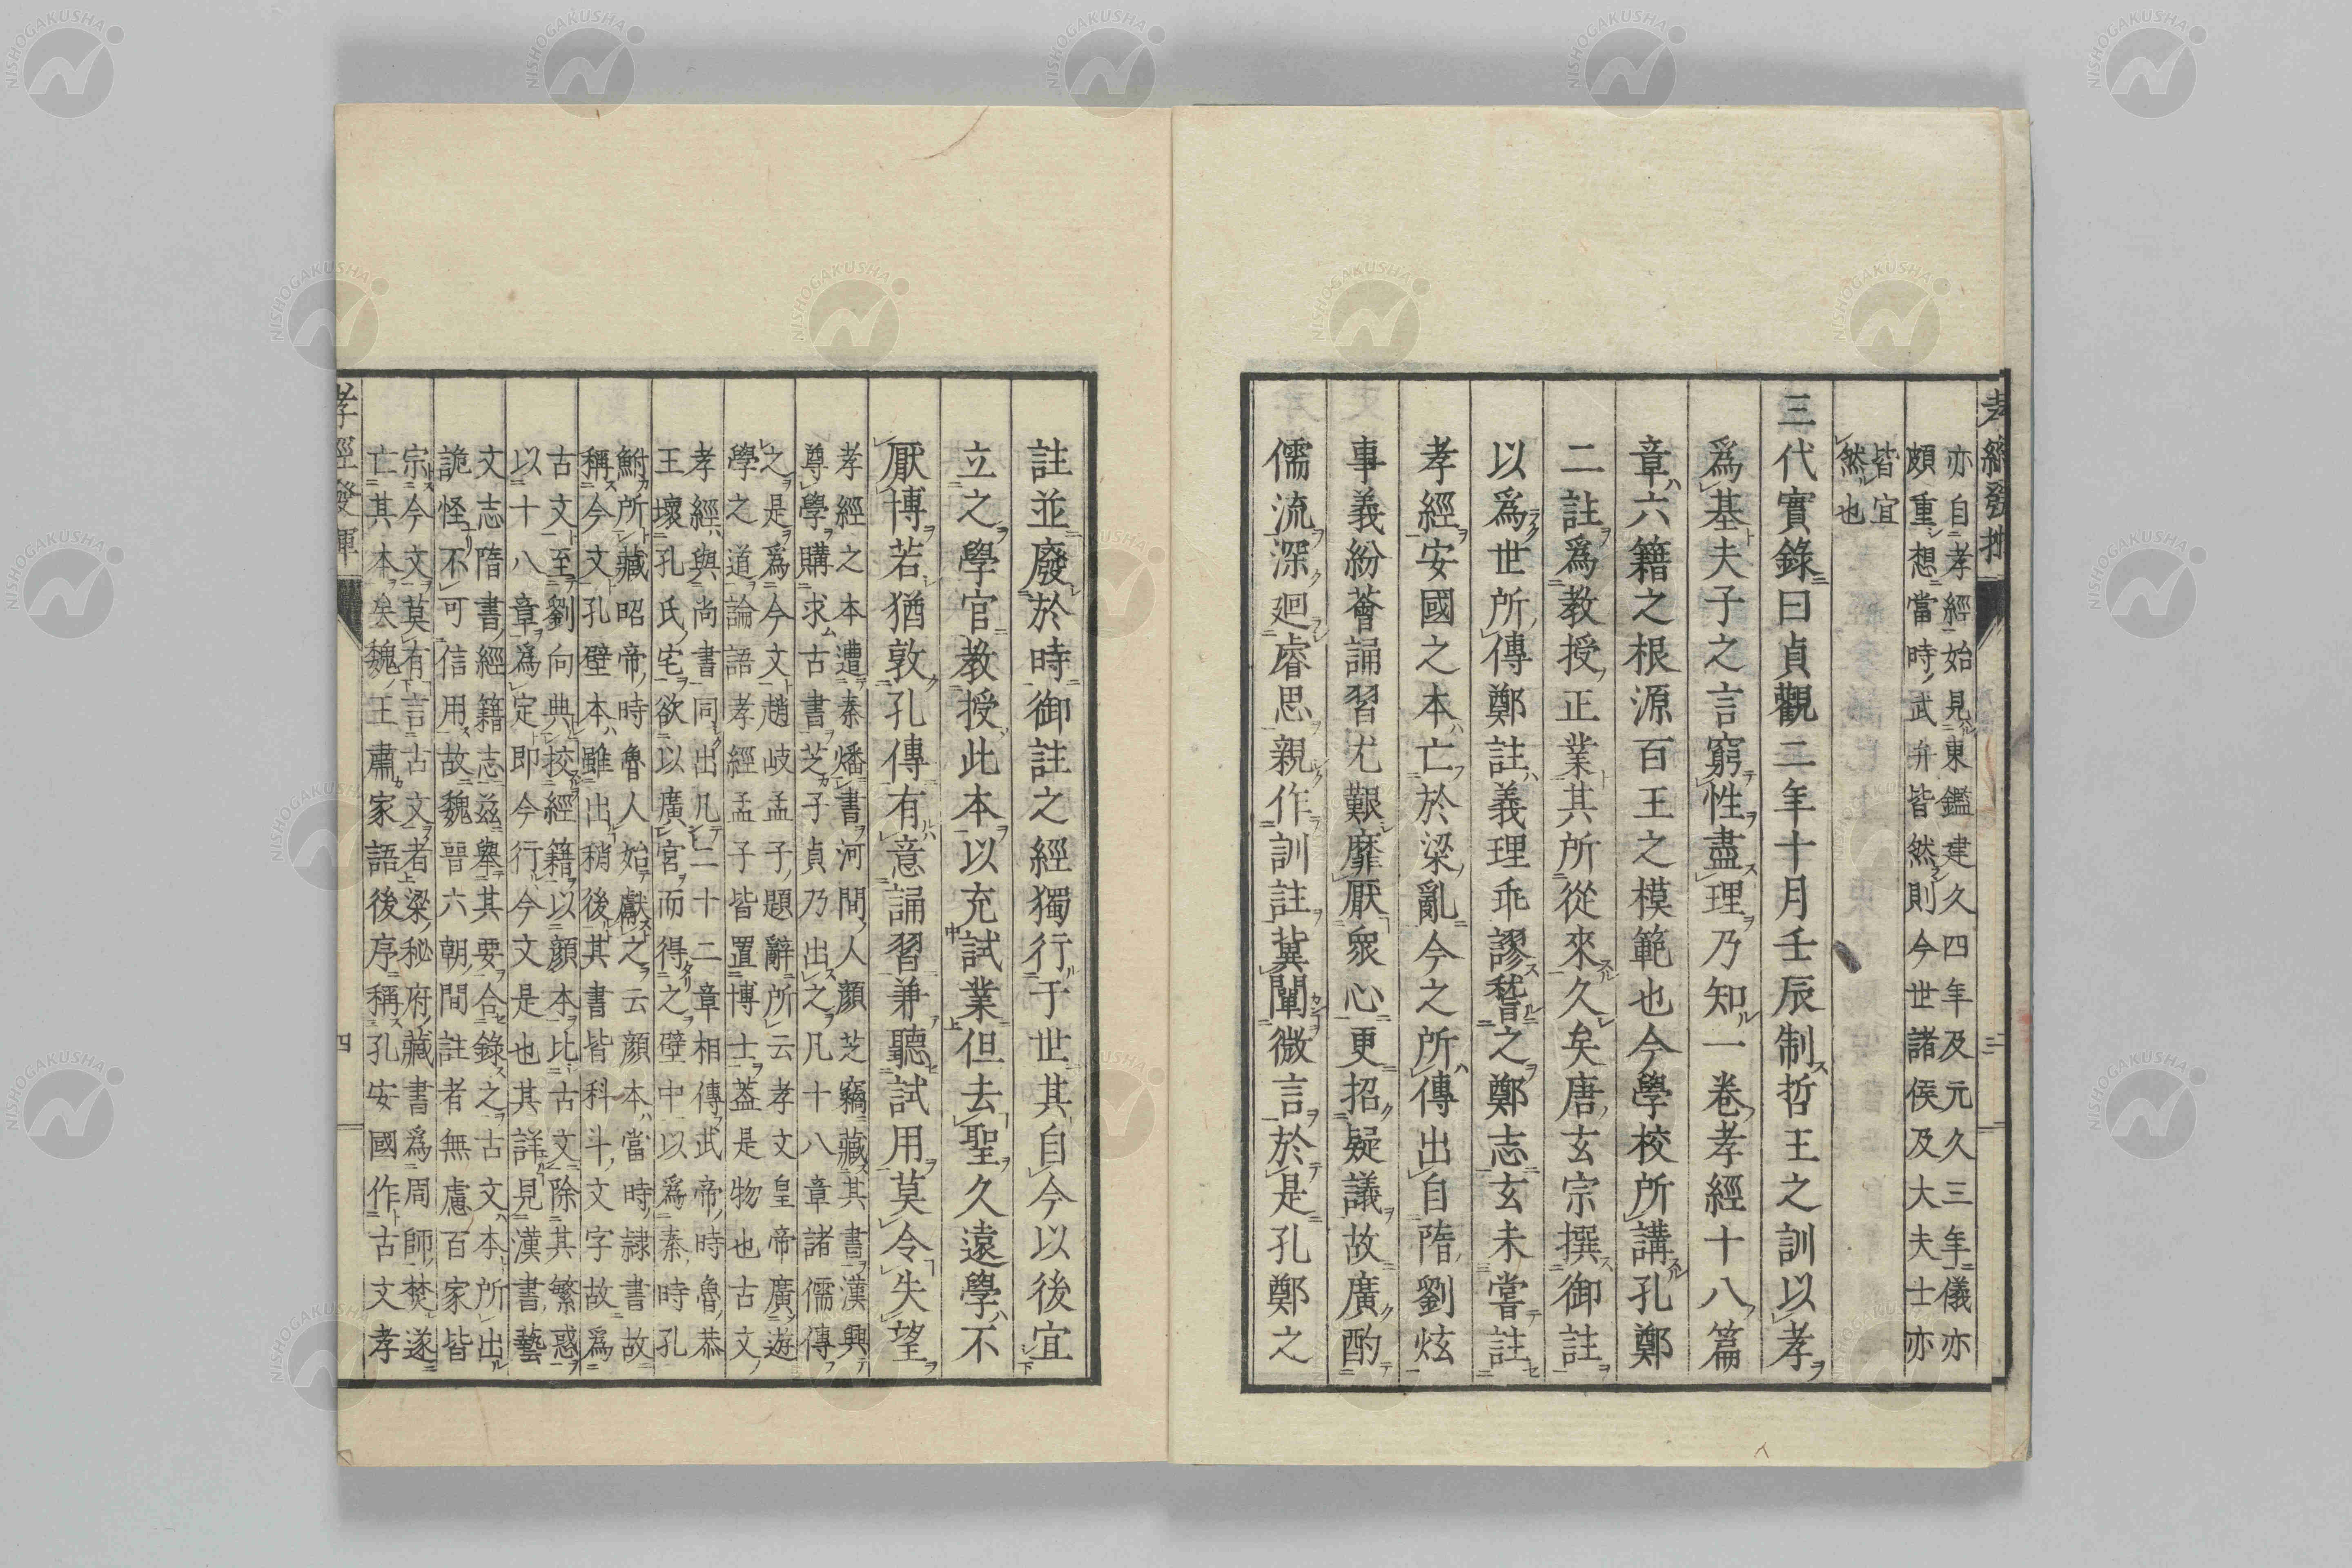 孝經發揮
三
亦自孝經始見東鑑建久四年及元久三年儀亦
頗重想當時武弁皆然則今世諸侯及大夫士亦
皆宜
然也
三代實錄曰貞觀二年十月壬辰制哲王之訓以孝
爲基夫子之言窮性盡理乃知一卷孝經十八篇
章六籍之根源百王之模範也今學校所講孔鄭
二註爲教授正業其所從來久矣唐玄宗撰御註
以爲世所傳鄭註義理乖謬稽之鄭志玄未嘗註
孝經安國之本亡於梁亂今之所傳出自隋劉炫
事義紛薈誦習尤艱靡厭衆心更招疑議故廣酌
儒流深廻睿思親作訓註冀闡微言於是孔鄭之
註並廢於時御註之經獨行于世其自今以後宜
立之學官教授此本以充試業但去聖久遠學不
厭博若猶敦孔傳有意誦習兼聽試用莫令失望
孝經之本遭秦燔書河間人顏芝竊藏其書漢興
尊學購求古書芝子貞乃出之凡十八章諸儒傳
之是爲今文趙岐孟子題辭所云孝文皇帝廣遊
學之道論語孝經孟子皆置博士蓋是物也古文
孝經與尚書同出凡二十二章相傳武帝時魯恭
王壞孔氏宅欲以廣宮而得之壁中以爲秦時孔
鮒所藏昭帝時魯人始獻之云顏本當時隸書故
稱今文孔壁本雖出稍後其書皆科斗文字故爲
古文至劉向典校經籍以顏本比古文除其繁惑
以十八章爲定即今行今文是也其詳見漢書藝
文志隋書經籍志茲舉其要合錄之古文本所出
詭怪不可信用故魏晉六朝間註者無慮百家皆
宗今文莫有言古文者梁秘府藏書爲周師焚遂
亡其本矣魏王肅家語後序稱孔安國作古文孝
孝經發揮
四
NISHOGAKUSHA